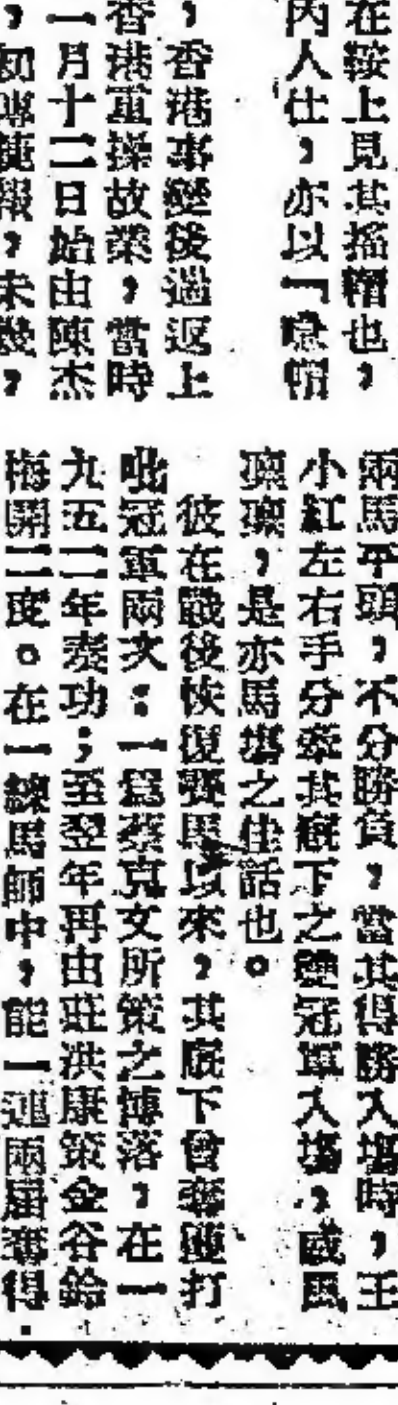 在鞍上見其搖帽也，
內人仕，亦以「
，香港事變後遄返上
香港重操故業，當時
一月十二日始由陳杰
，初傳捷報，未幾，
兩馬平頭，不分勝負，當其得勝入塲時，王
小紅左右手分牽其廐下之雙冠軍入塲，威風
凜凜，是亦馬塲之佳話也。
彼在戰後恢復賽馬以來，其廐下曾奪打
吡冠軍兩次：一爲蔡克文所策之博落，在一
九五二年奏功；至翌年再由莊洪康策金谷鈴
梅開二度。在一練馬師中，能一連兩屆奪得